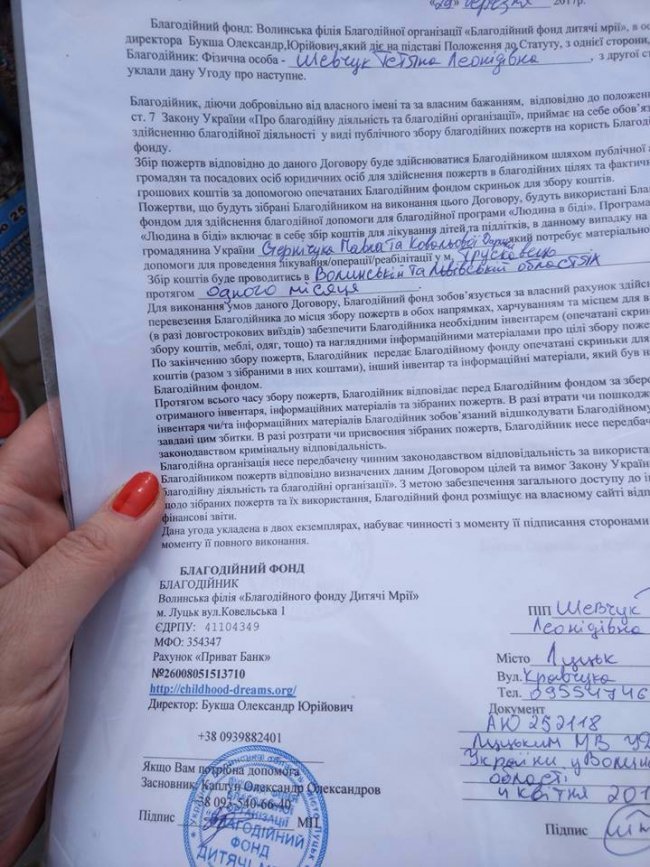 «29» березня 2017р.
Благодійний фонд: Волинська філія Благодійної організації «Благодійний фонд дитячі мрії», в ос
директора Букша Олександр,Юрійович,який діє на підставі Положення до Статуту, з однієї сторони,
Благодійник: Фізична особа - Шевчук Тетяна Леонідівна , з другої ст
уклали дану Угоду про наступне.
Благодійник, діючи добровільно від власного імені та за власним бажанням, відповідно до положен
ст. 7 Закону України «Про благодійну діяльність та благодійні організації», приймає на себе обов'яз
здійсненню благодійної діяльності у виді публічного збору благодійних пожертв на користь Благод
фонду.
Збір пожертв відповідно до даного Договору буде здійснюватися Благодійником шляхом публічної а
громадян та посадових осіб юридичних осіб для здійснення пожертв в благодійних цілях та фактичн
грошових коштів за допомогою опечатаних Благодійним фондом скриньок для збору коштів.
Пожертви, що будуть зібрані Благодійником на виконання цього Договору, будуть використані Бла
фондом для здійснення благодійної допомоги для благодійної програми «Людина в біді». Програма
«Людина в біді» включає в себе збір коштів для лікування дітей та підлітків, в данному випадку на
громадянина України Павла та який потребує матеріально
допомоги для проведення лікування/операції/реабілітації у м.
Збір коштів буде проводитись в Волинській та Львівській областях
протягом одного місяця
Для виконання умов даного Договору, Благодійний фонд зобов'язується за власний рахунок здійс
перевезення Благодійника до місця збору пожертв в обох напрямках, харчуванням та місцем для в
(в разі довгострокових виїздів) забезпечити Благодійника необхідним інвентарем (опечатані скрин
збору коштів, меблі, одяг, тощо) та наглядними інформаційними матеріалами про цілі збору пожер
По закінченню збору пожертв, Благодійник передає Благодійному фонду опечатані скриньки для
коштів (разом з зібраними в них коштами), інший інвентар та інформаційні матеріали, який був н
Благодійним фондом.
Протягом всього часу збору пожертв, Благодійник відповідає перед Благодійним фондом за збере
отриманого інвентаря, інформаційних матеріалів та зібраних пожертв. В разі втрати чи пошкодж
інвентаря чи/та інформаційних матеріалів Благодійник зобов'язаний відшкодувати Благодійному
завдані цим збитки. В разі розтрати чи присвоєння зібраних пожертв, Благодійник несе передбач
законодавством кримінальну відповідальність.
Благодійна організація несе передбачену чинним законодавством відповідальність за використа
Благодійником пожертв відповідно визначених даним Договором цілей та вимог Закону Україн
благодійну діяльність та благодійні організації». З метою забезпечення загального доступу до і
щодо зібраних пожертв та їх використання, Благодійний фонд розміщує на власному сайті відп
фінансові звіти.
Дана угода укладена в двох екземплярах, набуває чинності з моменту її підписання сторонами
моменту її повного виконання.
БЛАГОДІЙНИЙ ФОНД
БЛАГОДІЙНИК
Волинська філія «Благодійного фонду Дитячі Мрії»
м. Луцьк вул.Ковельська 1
ЄДРПУ: 41104349
МФО: 354347
Рахунок «Приват Банк»
№26008051513710
http://childhood-dreams.org/
Директор: Букша Олександр Юрійович
+38 0939882401
Якщо Вам потрібна допомога
Засновник: Каплун Олександр Олександров
+38 093-540-66-40
Підпис МП
БЛАГОДІЙНИЙ
ФОНД
ДИТЯЧІ
ПІП Шевчук
Леонідівна
Місто Луцьк
Вул. Кравчука
Тел. 09554746
Документ
АЮ 252118
Луцьким МВ УД
України у Волинс
області
4 квітня 201
Підпис